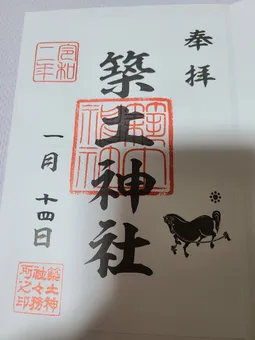 奉拝
築土神社
令和二年
一月十四日
築土神社
築土神社々務所之印